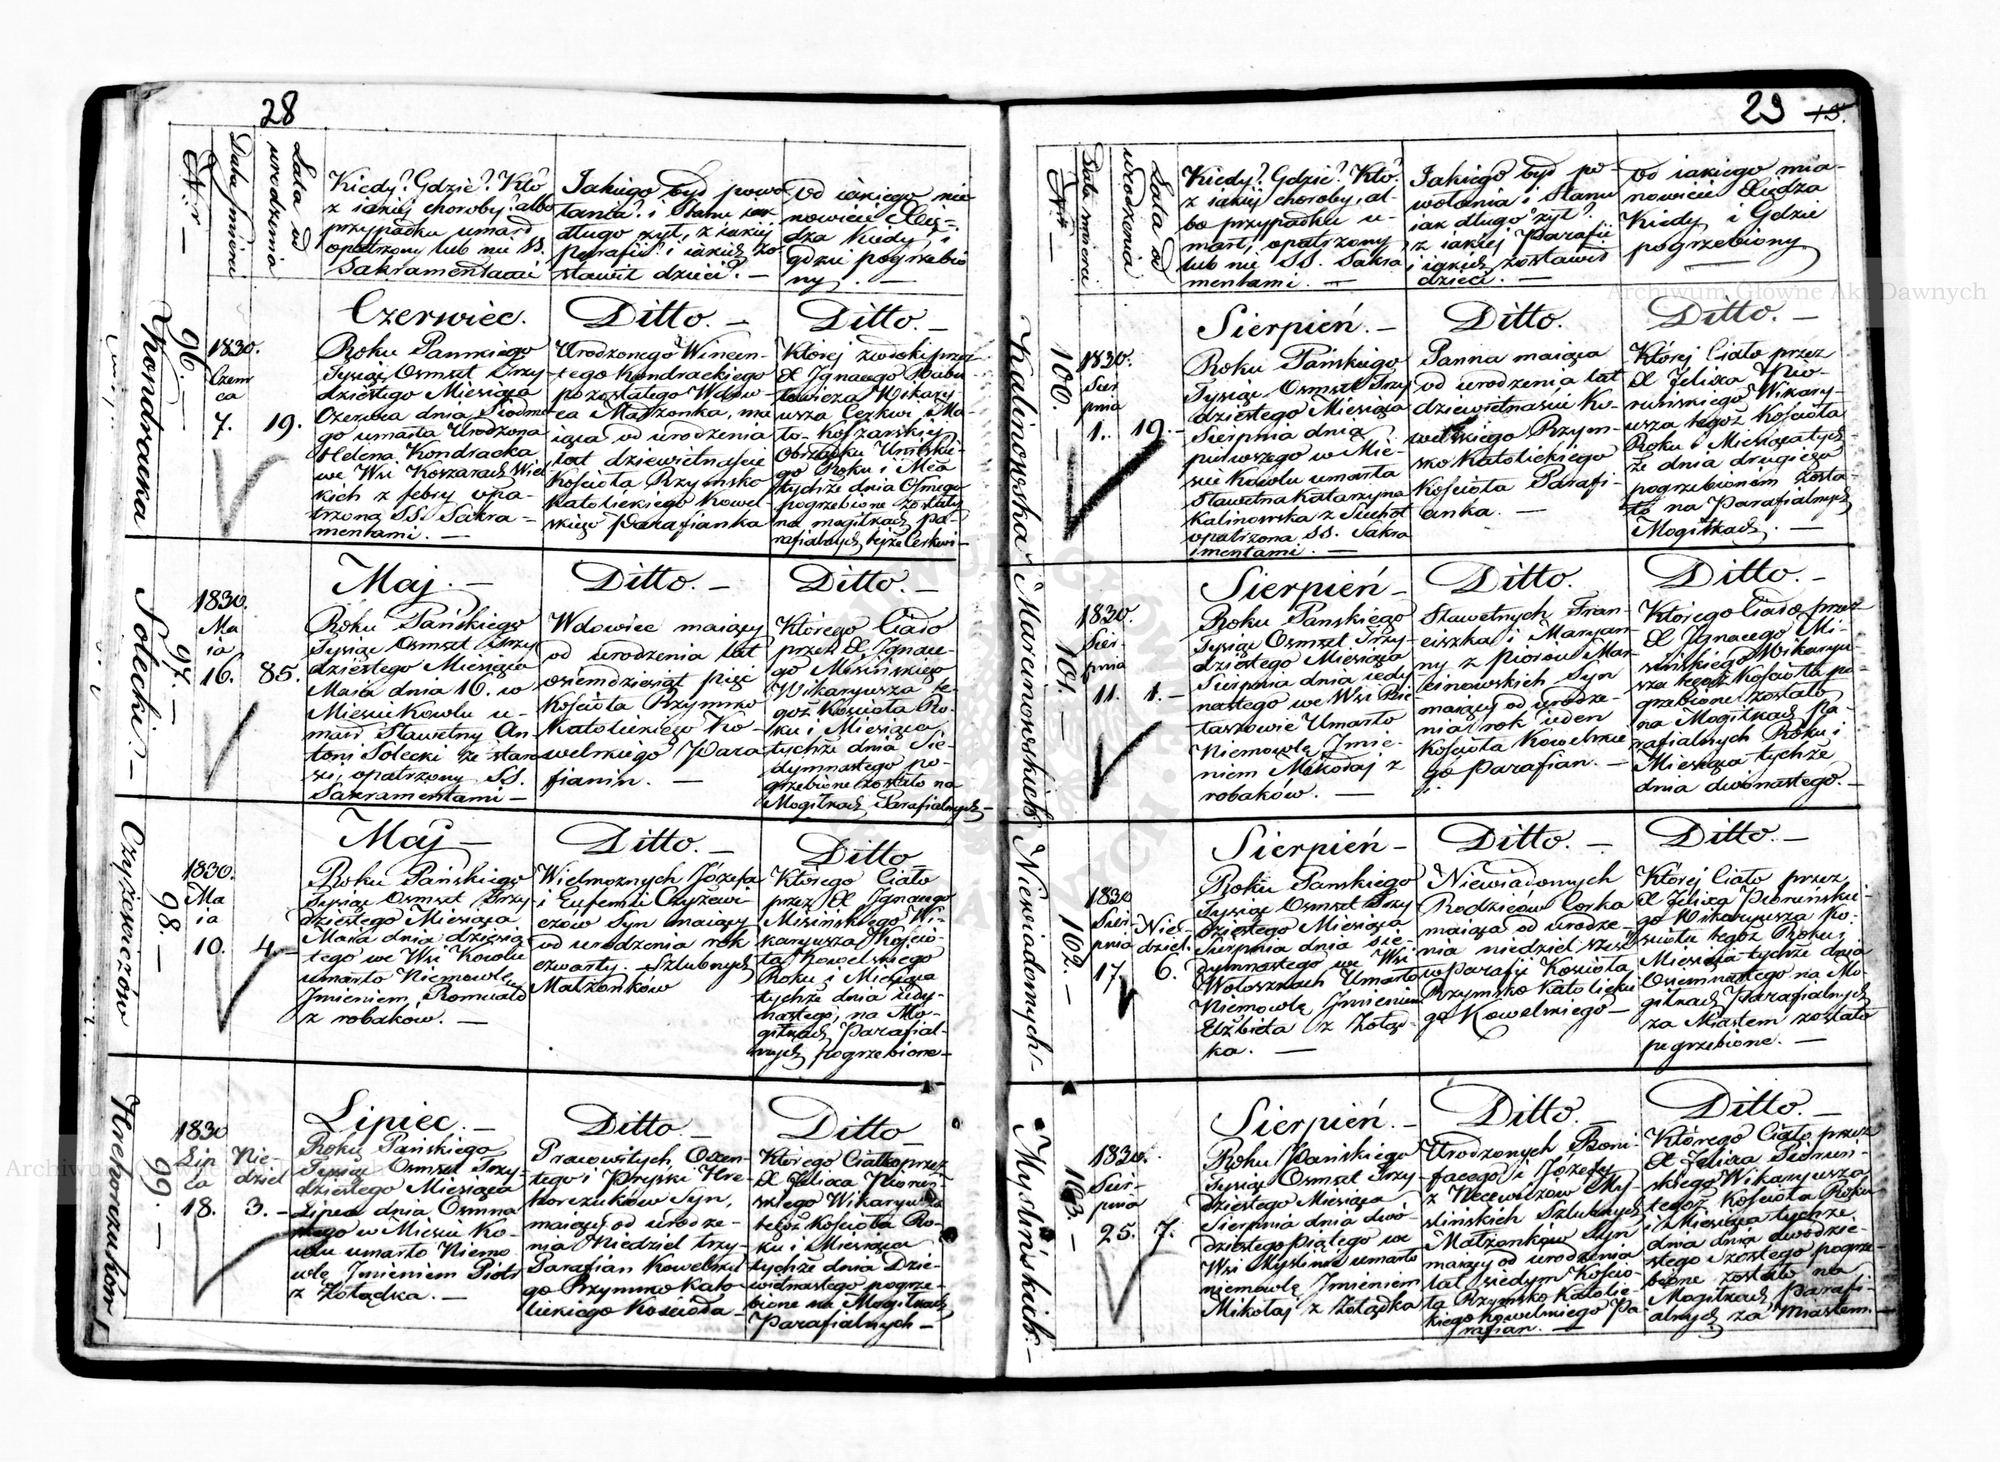 28
N.r —
Data śmierci
Lata od
urodzenia
Kiedy? Gdzie? Kto
z iakiej choroby? albo
przypadku umarł
opatrzony lub nie SS.
Sakramentami
Jakiego był powo
łania? i Stanu iak
długo żył, z iakiej
parafii? i iakich zo-
stawił dzieci? —
Od iakiego mia
nowicie Xię-
dza Kiedy, i
gdzie pogrzebio
ny. —
Kondracka
96. —
1830.
Czerw
ca
7.
19.
Czerwiec.
Roku Pańskiego
Tysiąc Osmset Trzy-
dziestego Miesiąca
Czerwca dnia Siódme
go umarła Urodzona
Helena Kondracka
we Wsi Koszarach Wiel
kich z febry opa-
trzona SS. Sakra-
mentami. —
Ditto. —
Urodzonego Wincen-
tego Kondrackiego
pozostałego Wdow-
ca Małżonka, ma
iąca od urodzenia
lat dziewietnaście
Kościoła Rzymsko
Katolickiego Kowel-
skiego Parafianka
Ditto. —
Której zwłoki przez
X Ignacego
Wikary
usza Cerkwi Ma-
ło-Koszarskiej
Obrządku Unitskie-
go Roku i Mca
tychże dnia Osmego
pogrzebione zostały
na mogiłkach pa-
rafialnych teyże Cerkwi —
Solecki. —
97. —
1830.
Ma
ia
16.
85.
Maj. —
Roku Pańskiego
Tysiąc Osmset Trzy
dziestego Miesiąca
Maia dnia 16. w
Mieście Kowlu u-
marł Sławetny An-
toni Solecki ze star
ści, opatrzony SS.
Sakramentami —
Ditto. —
Wdowiec maiący
od urodzenia lat
osiemdziesiąt pięć
Kościoła Rzymsko
Katolickiego Ko-
welskiego Para
fianin. —
Ditto. —
Którego Ciało
przez X Ignace-
go Misińskiego
Wikaryusza te-
goż Kościoła Ro-
ku i Miesiąca
tychże dnia Sie-
dymnastego po-
grzebione zostało na
Mogiłkach Parafialnych —
Czyżewiczów
98. —
1830.
Ma
ia
10.
4. —
Maj —
Roku Pańskiego
Tysiąc Osmset Trzy
dziestego Miesiąca
Maia dnia dziesią
tego we Wsi Kowlu
umarło Niemowlę
Imieniem Romuald
z robaków. —
Ditto. —
Wielmożnych Józefa
i Eufemii Czyżewi
czów Syn maiący
od urodzenia rok
czwarty. Szlubnych
Małżonków
Ditto
Którego Ciało
przez X Ignacego
Misińskiego Wi-
karyusza Kościo-
ła Kowelskiego
Roku i Miesiąca
tychże dnia iedy-
nastego, na Mo-
giłkach Parafial-
nych pogrzebione —
Hrehorczuków
99. —
1830
Lip
ca
18.
Nie-
dziel
3. —
Lipiec. —
Roku Pańskiego
Tysiąc Osmset Trzy-
dziestego Miesiąca
Lipca dnia Osmna
stego w Mieście Ko-
wlu umarło Niemo
wlę Imieniem Piotr
z Żołądka. —
Ditto —
Pracowitych, Oxen-
tego i Pryski Hre
horczuków Syn,
maiący od urodze-
nia Niedziel trzy-
Parafian Kowelskie
go Rzymsko Kato-
lickiego Kościoła —
Ditto —
Którego Ciałko przez
X Felixa Pioruń-
skiego Wikaryusza
tegoż Kościoła Ro-
ku i Miesiąca
tychże dnia Dzie-
wietnastego pogrze-
bione na Mogiłkach
Parafialnych —
29 13.
N.r —
Data śmierci
Lata od
urodzenia
Kiedy? Gdzie? Kto?
z iakiej choroby, al-
bo przypadku u-
marł, opatrzony
lub nie SS. Sakra
mentami. —
Jakiego był po
wołania i Stanu
iak długo żył?
z iakiej Parafii
i iakich zostawił
dzieci. —
Od iakiego mia-
nowicie Xiędza
Kiedy i Gdzie
pogrzebiony
Kalinowska
100. —
1830.
Sier
pnia
1.
19. —
Sierpień. —
Roku Pańskiego
Tysiąc Osmset Trzy
dziestego Miesiąca
Sierpnia dnia
pierwszego w Mie-
ście Kowlu umarła
Sławetna Katarzyna
Kalinowska z Suchot
opatrzona SS. Sakra
mentami. —
Ditto.
Panna maiąca
od urodzenia lat
dziewietnaście Ko-
welskiego Rzym-
sko Katolickiego
Kościoła Parafi-
anka. —
Ditto. —
Której Ciało przez
X Felixa Pio-
ruńskiego Wikary-
usza tegoż Kościoła
Roku i Miesiąca tych-
że dnia drugiego
pogrzebionem zosta-
ło na Parafialnych
Mogiłkach. —
Marcinowskich
101. —
1830.
Sier-
pnia
11.
1. —
Sierpień —
Roku Pańskiego
Tysiąc Osmset Trzy-
dziestego Miesiąca
Sierpnia dnia iedy
nastego we Wsi
Umarło
Niemowlę Imie-
niem Mikołaj z
robaków. —
Ditto.
Sławetnych Fran-
ciszka i Maryan-
ny z Piorów Mar
cinowskich Syn
maiący od urodze-
nia rok ieden
Kościoła Kowelskie
go Parafian. —
Ditto. —
Którego Ciało przez
X Ignacego Mi-
sińskiego Wikaryu
sza tegoż Kościoła po
grzebione zostało
na Mogiłkach Pa-
rafialnych Roku i
Miesiąca tychże
dnia dwónastego. —
Niewiadomych —
102. —
1830
Sier
pnia
17.
Nie-
dziel.
6.
Sierpień —
Roku Pańskiego
Tysiąc Osmset Trzy
dziestego Miesiąca
Sierpnia dnia sie-
dymnastego we Wsi
Wołosznach Umarło
Niemowlę Imieniem
Elżbieta z Żołąd-
ka. —
Ditto. —
Niewiadomych
Rodziców Córka
maiąca od urodze-
nia niedziel sześć
w Parafii Kościoła
Rzymsko Katolickie
go Kowelskiego —
Ditto. —
Której Ciało przez
X Felixa Pioruńskie-
go Wikaryusza Ko-
ścioła tegoż Roku,
Miesiąca tychże dnia
Osiemnastego na Mo-
giłkach Parafialnych
za Miastem zostało
pogrzebione. —
Myślińskich —
103. —
1830.
Sier-
pnia
25.
7.
Sierpień. —
Roku Pańskiego
Tysiąc Osmset Trzy-
dziestego Miesiąca
Sierpnia dnia dwó-
dziestego Piątego we
Wsi Myślinie umarło
niemowlę Imieniem
Mikołaj z Żołądka
Ditto. —
Urodzonych Boni-
facego i Józefy
z Necewiczów My-
ślińskich Szlubnych
Małżonków Syn
maiący od urodzenia
lat siedym Kościo-
ła Rzymsko Katolic-
kiego Kowelskiego Pa
rafian. —
Ditto. —
Którego Ciało przez
X Felixa Pioruń-
skiego Wikaryusza
tegoż Kościoła Roku
i Miesiąca tychże
dnia dwódzie-
stego szóstego pogrze-
bione zostało na
Mogiłkach Parafi-
alnych za Miastem. —
Archiwum Główne Akt Dawnych